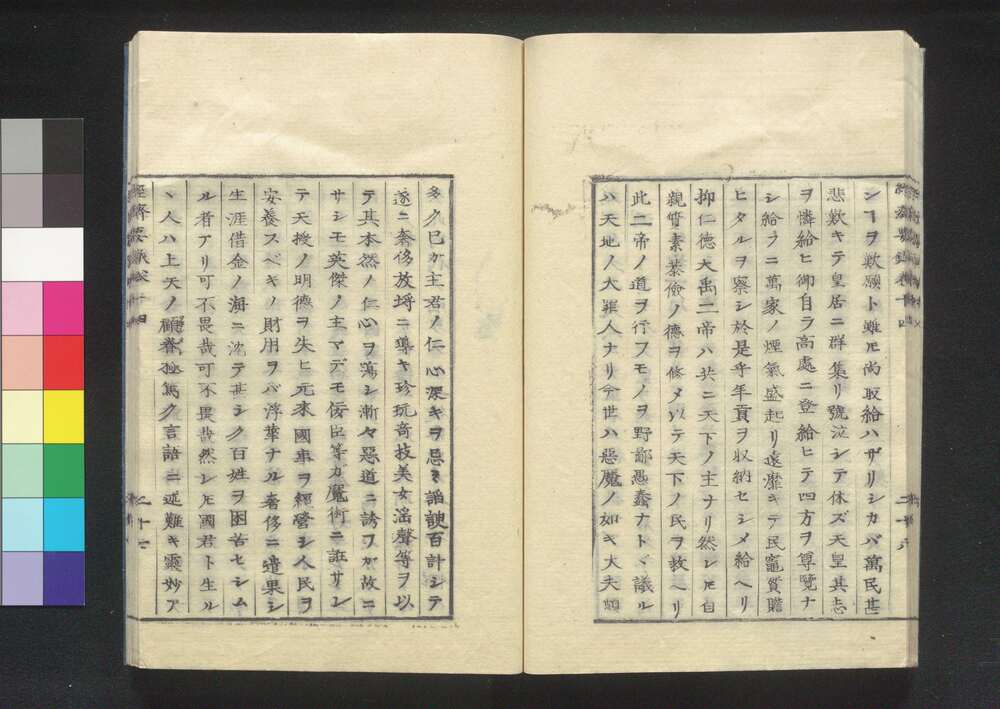 シヿヲ歎願ト雖ㇳモ尚取給ハザリシカバ萬民甚
悲歎キテ皇居ニ群集リ號泣シテ休ズ天皇其志
ヲ憐給ヒ御自ラ高處ニ登給ヒテ四方ヲ尊覽ナ
シ給フニ萬家ノ煙氣盛起リ遠靡キテ民竈質贍
ヒタルヲ察シ於是乎年貢ヲ収納セシメ給ヘリ
抑仁德大禹二帝ハ共ニ天下ノ主ナリ然シㇳモ自
親質素恭儉ノ德ヲ修メ以テ天下ノ民ヲ救ヘリ
此二帝ノ道ヲ行フモノヲ野鄙愚蠢ナトヾ議ル
ハ天地ノ大罪人ナリ今世ハ惡魔ノ如キ大夫
多ク已ガ主君ノ仁心深キヲ忌ミ謟諛百計シテ
遂ニ奢侈放埓ニ導キ珍玩奇技美女滛聲等ヲ以
テ其本然ノ仁心ヲ蕩シ漸々惡道ニ誘フガ故ニ
サシモ英傑ノ主マデモ佞臣等ガ魔術ニ誑サレ
テ天授ノ明德ヲ失ヒ元來國事ヲ經營シ人民ヲ
安養スベキノ財用ヲバ浮華ナル奢侈ニ遣果シ
生涯借金ノ海ニ沈テ甚シク百姓ヲ困苦セシム
ル者アリ可不畏哉可不畏哉然シㇳモ國君ト生ル
ヽ人ハ上天ノ顧眷極篤ク言語ニ述難キ靈妙ア